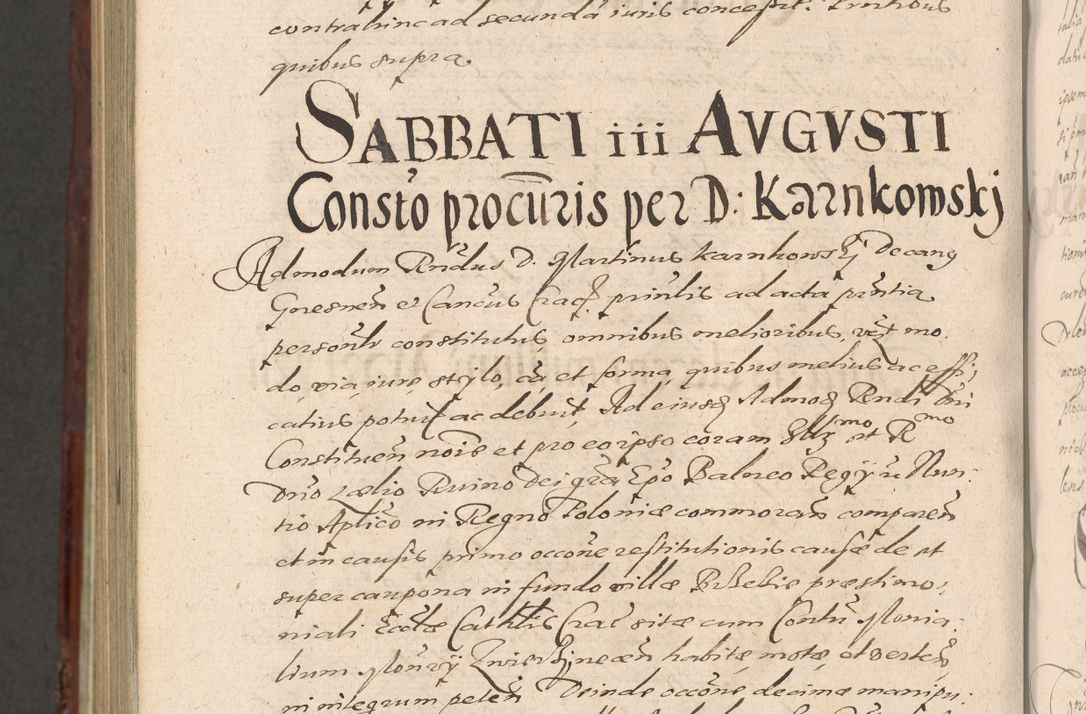 contrahinc ad secunda iuris concessit.
quibus supra
SABBATI iii AVGVSTI
Consto procuris per D: Karnkowskj
Admodum Rndus D. Martinus Karnkowskj Decang
Gnesnen et Cancus Crac principlis ad acta pntia
personlr constitutus, omnibus melioribus,
do, via, iure, stylo, et forma, quibus melius ac effi;
catius potuit ac debuit, Ad eiusq Admod Rendi Dni
Constituen noie et pro eo ipso coram Illmo et Rmo
Dno Lælio Ruino Dei gra Epo Balneo Regij Nun:
tio Aplico in Regno Poloniæ commoran comparen
et in causis primo occone restitutionis causæ de et
super caupona in fundo villæ præstimo,
niali Eccle Cathlis Crac sitæ cum Contu Monia:
lium habitæ, motæ, et verten
in integrum peten Deinde occone decimæ manipu: